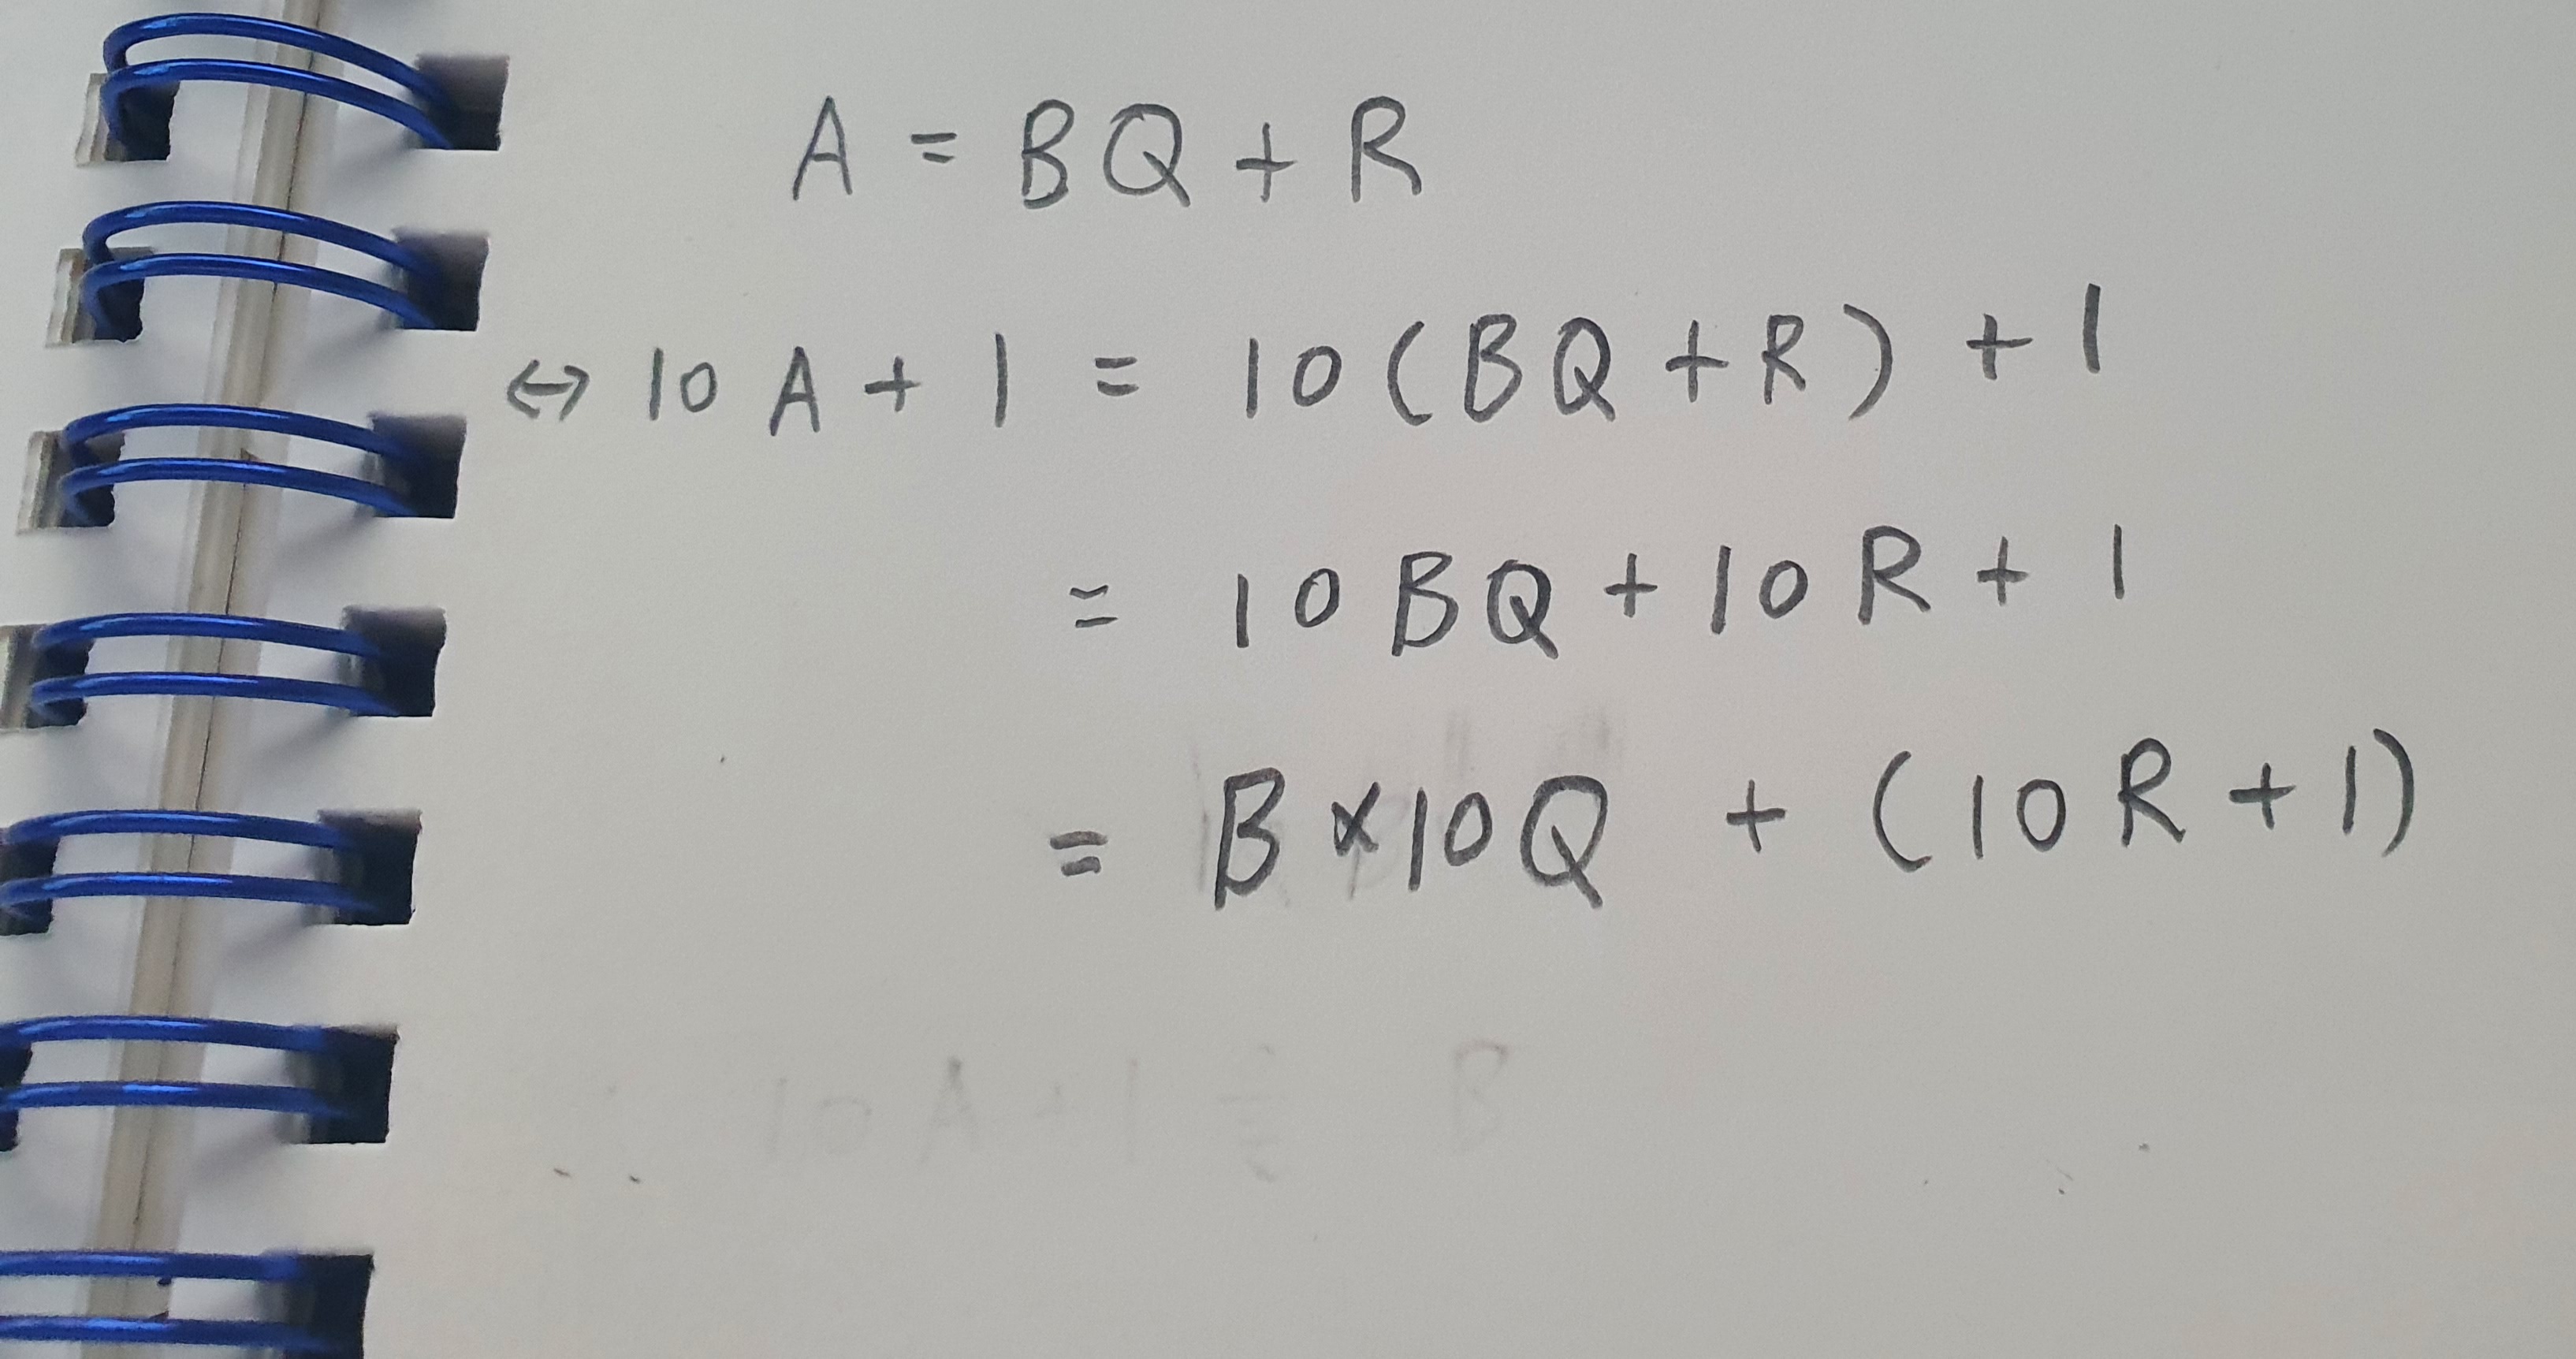 A = BQ + R
↔ 10A + 1 = 10(BQ + R) + 1
= 10BQ + 10R + 1
= B×10Q + (10R + 1)